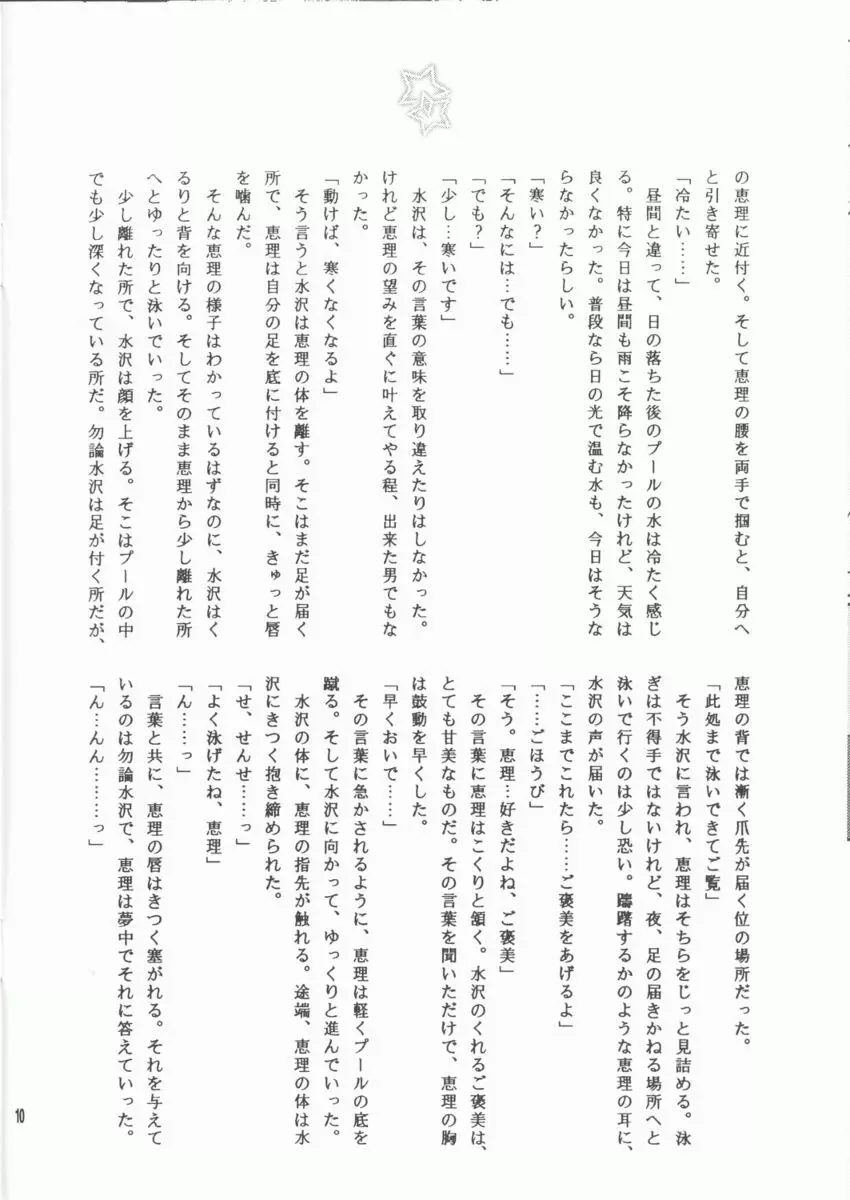 の恵理に近付く。そして恵理の腰を両手で掴むと、自分へ
と引き寄せた。
「冷たい……」
昼間と違って、日の落ちた後のプールの水は冷たく感じ
る。特に今日は昼間も雨こそ降らなかったけれど、天気は
良くなかった。普段なら日の光で温む水も、今日はそうな
らなかったらしい。
「寒い？」
「そんなには…でも……」
「でも？」
「少し…寒いです」
水沢は、その言葉の意味を取り違えたりはしなかった。
けれど恵理の望みを直ぐに叶えてやる程、出来た男でもな
かった。
「動けば、寒くなくなるよ」
そう言うと水沢は恵理の体を離す。そこはまだ足が届く
所で、恵理は自分の足を底に付けると同時に、きゅっと唇
を噛んだ。
そんな恵理の様子はわかっているはずなのに、水沢はく
るりと背を向ける。そしてそのまま恵理から少し離れた所
へとゆったりと泳いでいった。
少し離れた所で、水沢は顔を上げる。そこはプールの中
でも少し深くなっている所だ。勿論水沢は足が付く所だが、
恵理の背では漸く爪先が届く位の場所だった。
「此処まで泳いできてご覧」
そう水沢に言われ、恵理はそちらをじっと見詰める。泳
ぎは不得手ではないけれど、夜、足の届きかねる場所へと
泳いで行くのは少し恐い。躊躇するかのような恵理の耳に、
水沢の声が届いた。
「ここまでこれたら……ご褒美をあげるよ」
「……ごほうび」
「そう。恵理…好きだよね、ご褒美」
その言葉に恵理はこくりと頷く。水沢のくれるご褒美は、
とても甘美なものだ。その言葉を聞いただけで、恵理の胸
は鼓動を早くした。
「早くおいで……」
その言葉に急かされるように、恵理は軽くプールの底を
蹴る。そして水沢に向かって、ゆっくりと進んでいった。
水沢の体に、恵理の指先が触れる。途端、恵理の体は水
沢にきつく抱き締められた。
「せ、せんせ……っ」
「よく泳げたね、恵理」
「ん……っ」
言葉と共に、恵理の唇はきつく塞がれる。それを与えて
いるのは勿論水沢で、恵理は夢中でそれに答えていった。
「ん…んん………っ」
10